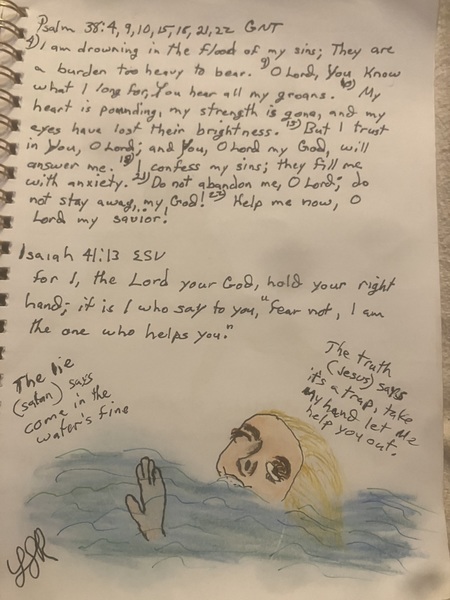 Psalm 38:4, 9, 10, 15, 18, 21, 22 GNT
4) I am drowning in the flood of my sins; They are
a burden too heavy to bear. 9) O Lord, You know
what I long for, You hear all my groans. 10) My
heart is pounding, my strength is gone, and my
eyes have lost their brightness. 15) But I trust
in You, O Lord; and You, O Lord my God, will
answer me. 18) I confess my sins; they fill me
with anxiety. 21) Do not abandon me, O Lord; do
not stay away, my God! 22) Help me now, O
Lord my savior!
Isaiah 41:13 ESV
for I, the Lord your God, hold your right
hand; it is I who say to you, "Fear not, I am
the one who helps you."
The lie
(satan) says
come in the
water's fine
The truth
(Jesus) says
it's a trap, take
My hand let Me
help you out.